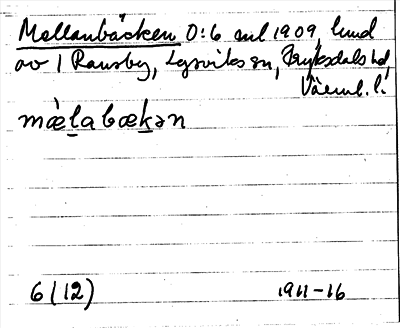 Mellanbäcken 0:6 enl 1909, lund
av 1 Ransby, Lysviks sn, Fryksdals hd,
Värml. l.
mæ̀l̠abæk̠ən
6 (12) 1911-16